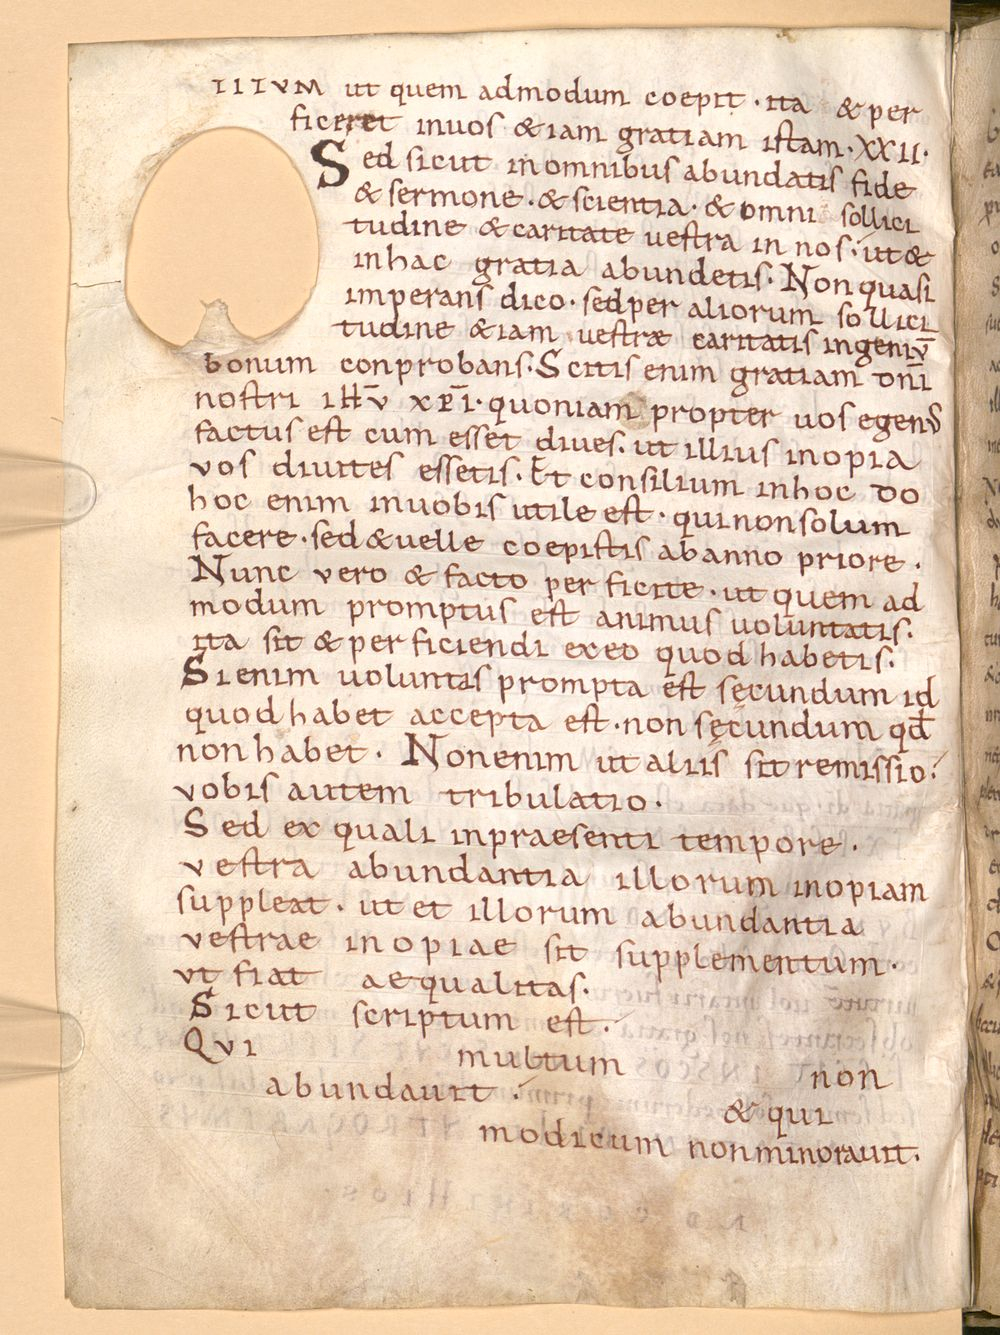 IIIVM ut quem admodum coepit · ita & per
ficeret inuos & iam gratiam istam · XXII ·
Sed sicut in omnibus abundatis fide
& sermone · & scientia · & omni sollici
tudine & caritate uestra in nos · ut &
in hac gratia abundetis · Non quasi
imperans dico · sed per aliorum sollici
tudine & iam uestrae caritatis ingeniū
bonum conprobans · Scitis enim gratiam dn̄i
nostri ihū xp̄i · quoniam propter uos egenus
factus est cum esset diues · ut illius inopia
vos diuites essetis · Et consilium in hoc do
hoc enim in uobis utile est · qui non solum
facere · sed & uelle coepistis ab anno priore ·
Nunc vero & facto perficite · ut quem ad
modum promptus est animus uoluntatis ·
ita sit & perficiendi ex eo quod habetis ·
Si enim uoluntas prompta est secundum id
quod habet accepta est · non secundum qđ
non habet · Non enim ut aliis sit remissio ·
vobis autem tribulatio ·
Sed ex quali in praesenti tempore ·
vestra abundantia illorum inopiam
suppleat · ut et illorum abundantia
vestrae inopiae sit supplementum ·
ut fiat aequalitas ·
Sicut scriptum est ·
Qui multum non
abundauit · & qui
modicum non minorauit ·